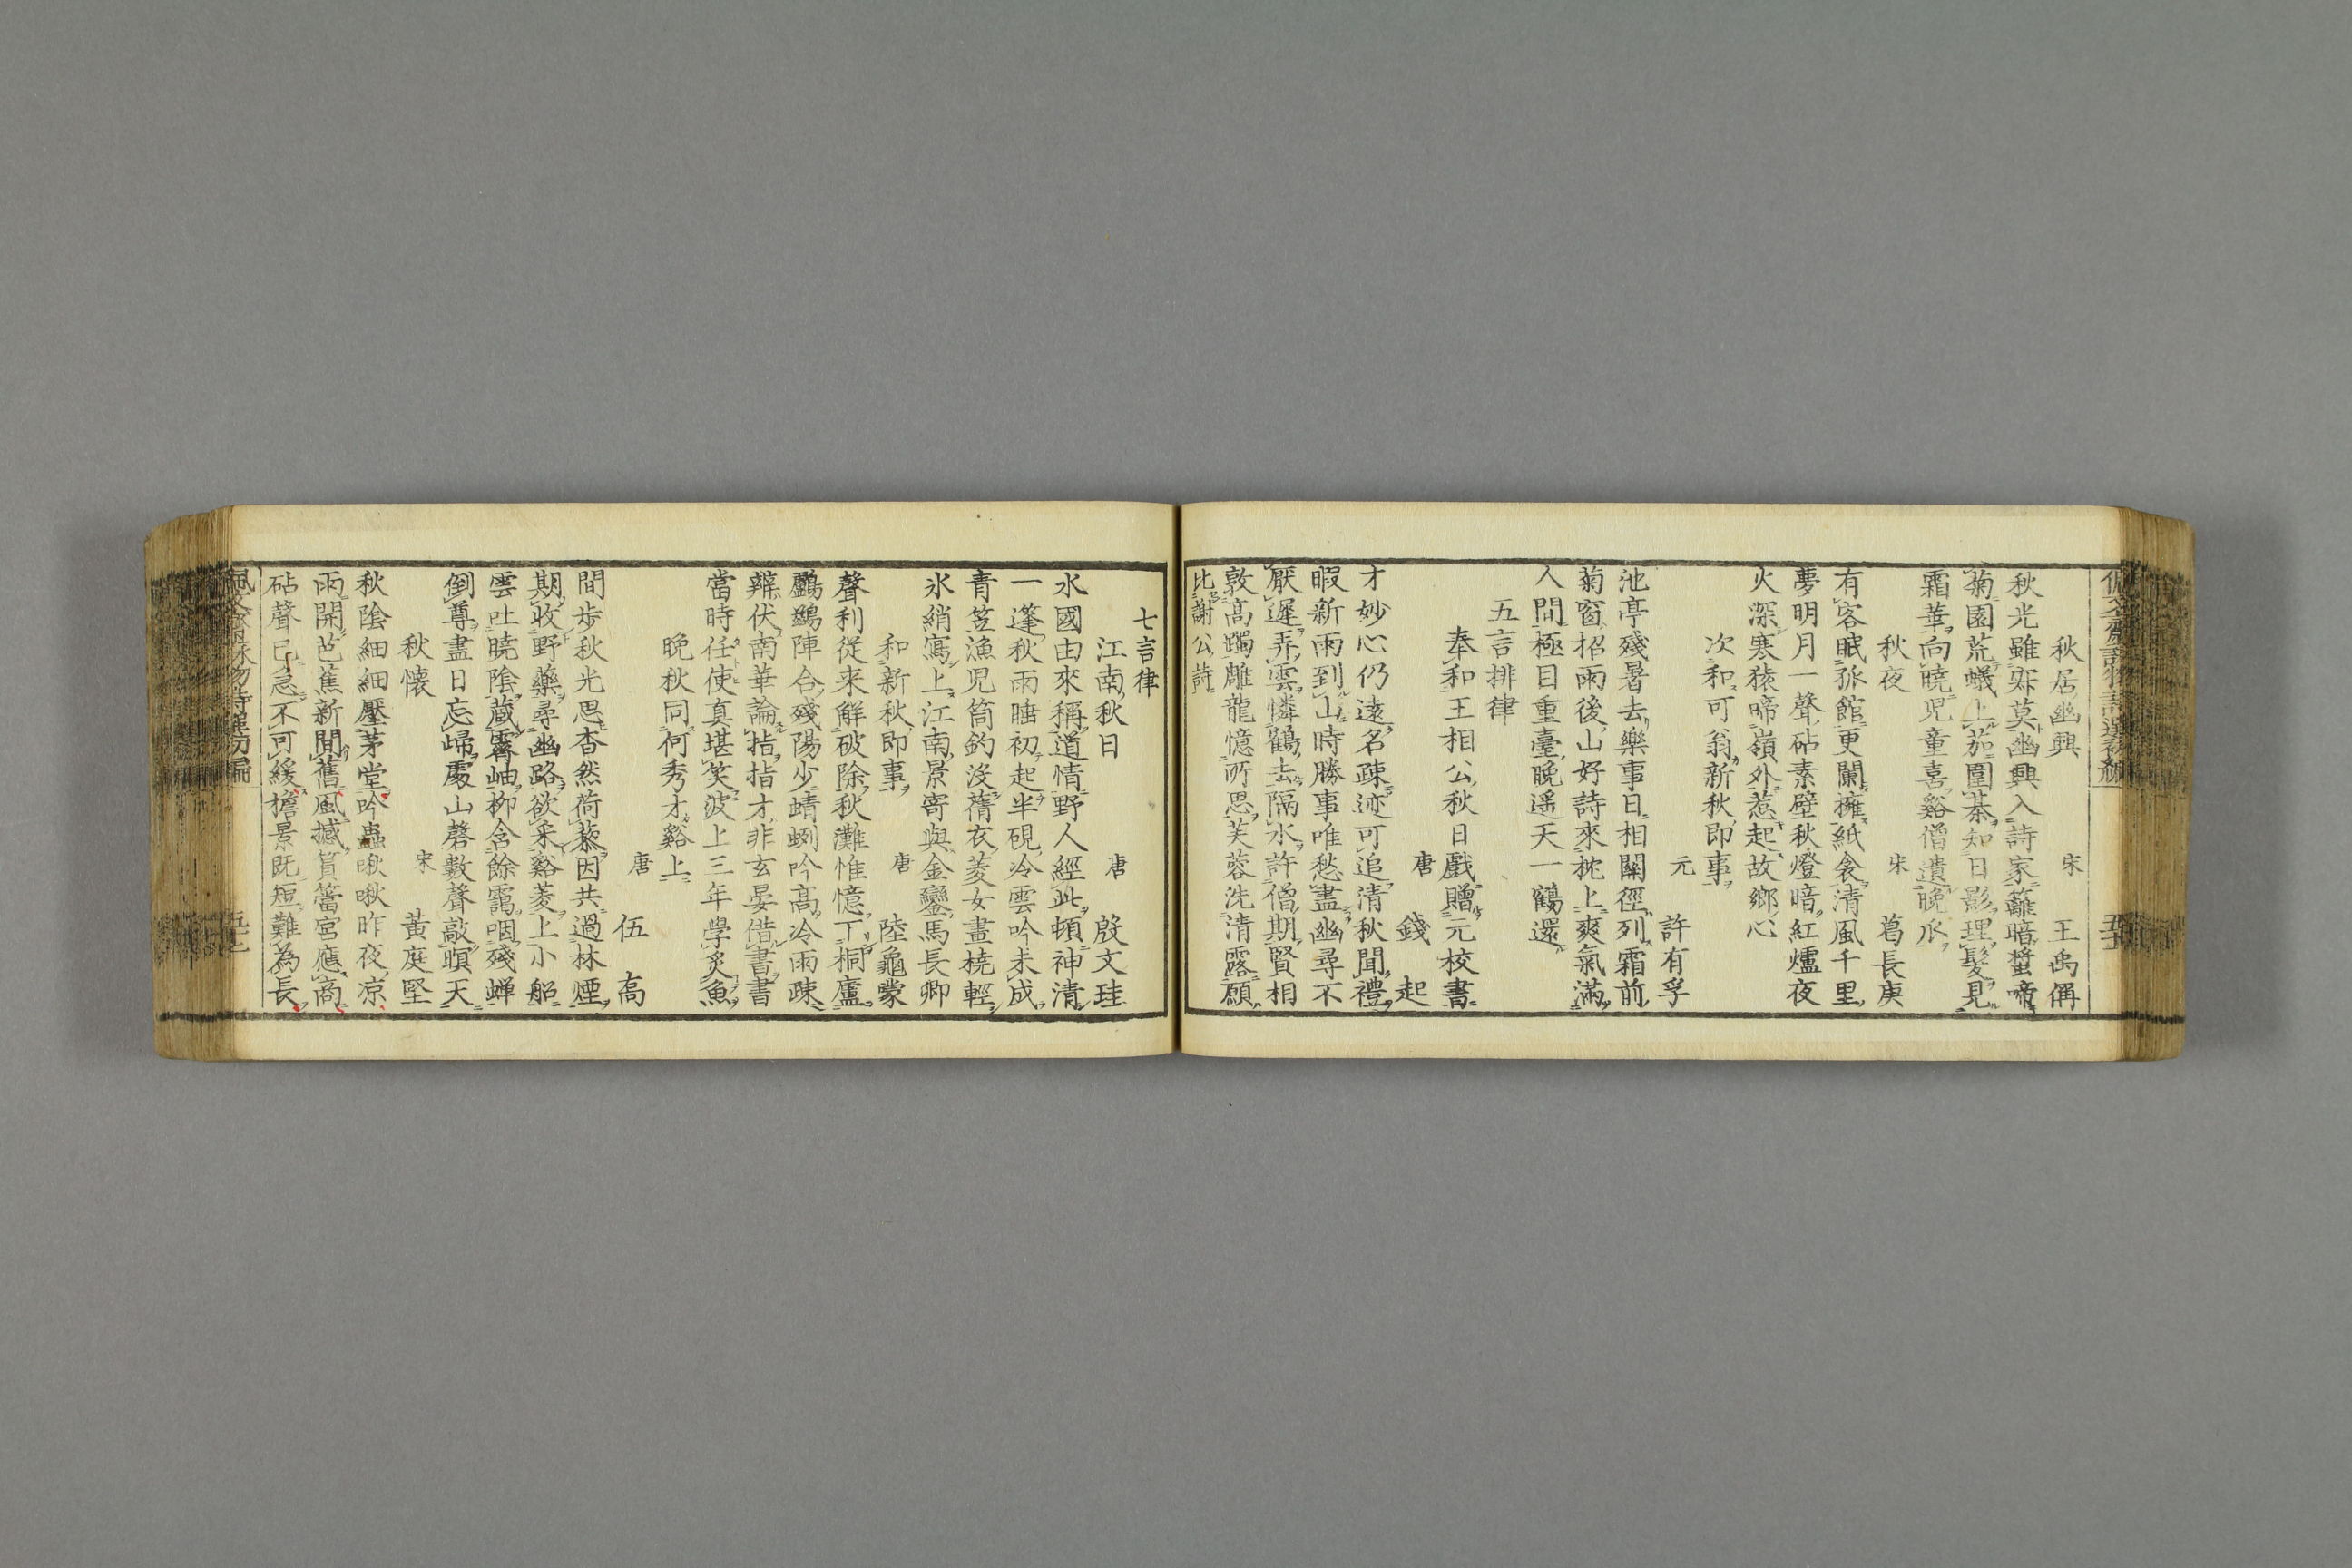 秋居幽興 宋 王禹偁
秋光雖寂莫幽興入詩家籬暗蛩啼
菊園荒蟻上茄圍棊知日影理髮見
霜華向曉児童喜谿僧遺晩瓜
秋夜 宋 葛長庚
有客眠孤館更闌擁紙衾清風千里
夢明月一聲砧素壁秋燈暗紅爐夜
火深寒猿啼嶺外惹起故鄉心
次和可翁新秋即事
元 許有孚
池亭殘暑去樂事日相關徑列霜前
菊窗招雨後山好詩來枕上爽氣滿
人間極目重臺晚遥天一鶴還
五言排律
奉和王相公秋日戲贈元校書
唐 錢起
才妙心仍遠名疎迹可追清秋聞禮
暇新雨到山時勝事唯愁盡幽尋不
厭遲弄雲憐鶴去隔水許僧期賢相
敦高躅雕龍憶所思芙蓉洗清露願
比謝公詩
七言律
江南秋日 唐 殷文珪
水國由來稱道情野人經此頓神清
一篷秋雨睡初起半硯冷雲吟未成
青笠漁児筒釣沒蒨衣菱女畫橈輕
氷綃寫上江南景寄與金鑾馬長卿
和新秋即事 唐 陸龜蒙
聲利従来解破除秋灘惟憶丁桐廬
鸂鶒陣合殘陽少蜻蛚吟高冷雨疎
辨伏南華論指指才非玄晏借書書
當時任使真堪笑波上三年學炙魚
晩秋同何秀才谿上
唐 伍高
閒步秋光思杳然荷蔾因共過林煙
期收野藥尋幽路欲采谿菱上小船
雲吐曉陰藏霽岫柳含餘靄咽殘蟬
倒尊盡日忘歸處山磬數聲敲暝天
秋懐 宋 黄庭堅
秋陰細細壓茅堂吟蟲啾啾昨夜凉
雨開芭蕉新間舊風撼篔簹宮應商
砧聲已急不可緩檐景既短難為長